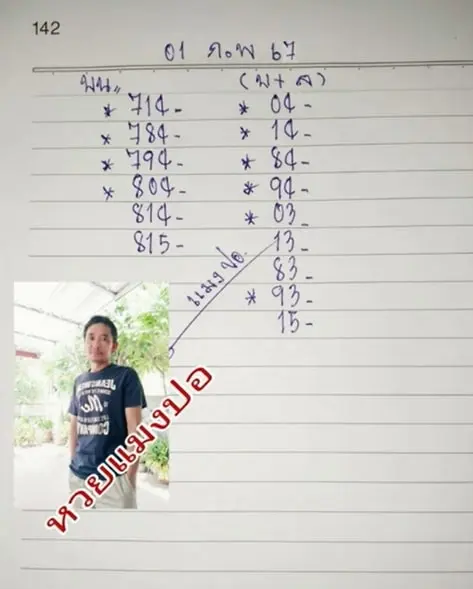 142
01 ก.พ 67
บน,, (บ+ล)
* 714- * 04-
* 784- * 14-
* 794- * 84-
* 804- * 94-
814- * 03-
815- 13-
83-
* 93-
15-
แมงปอ
หวยแมงปอ